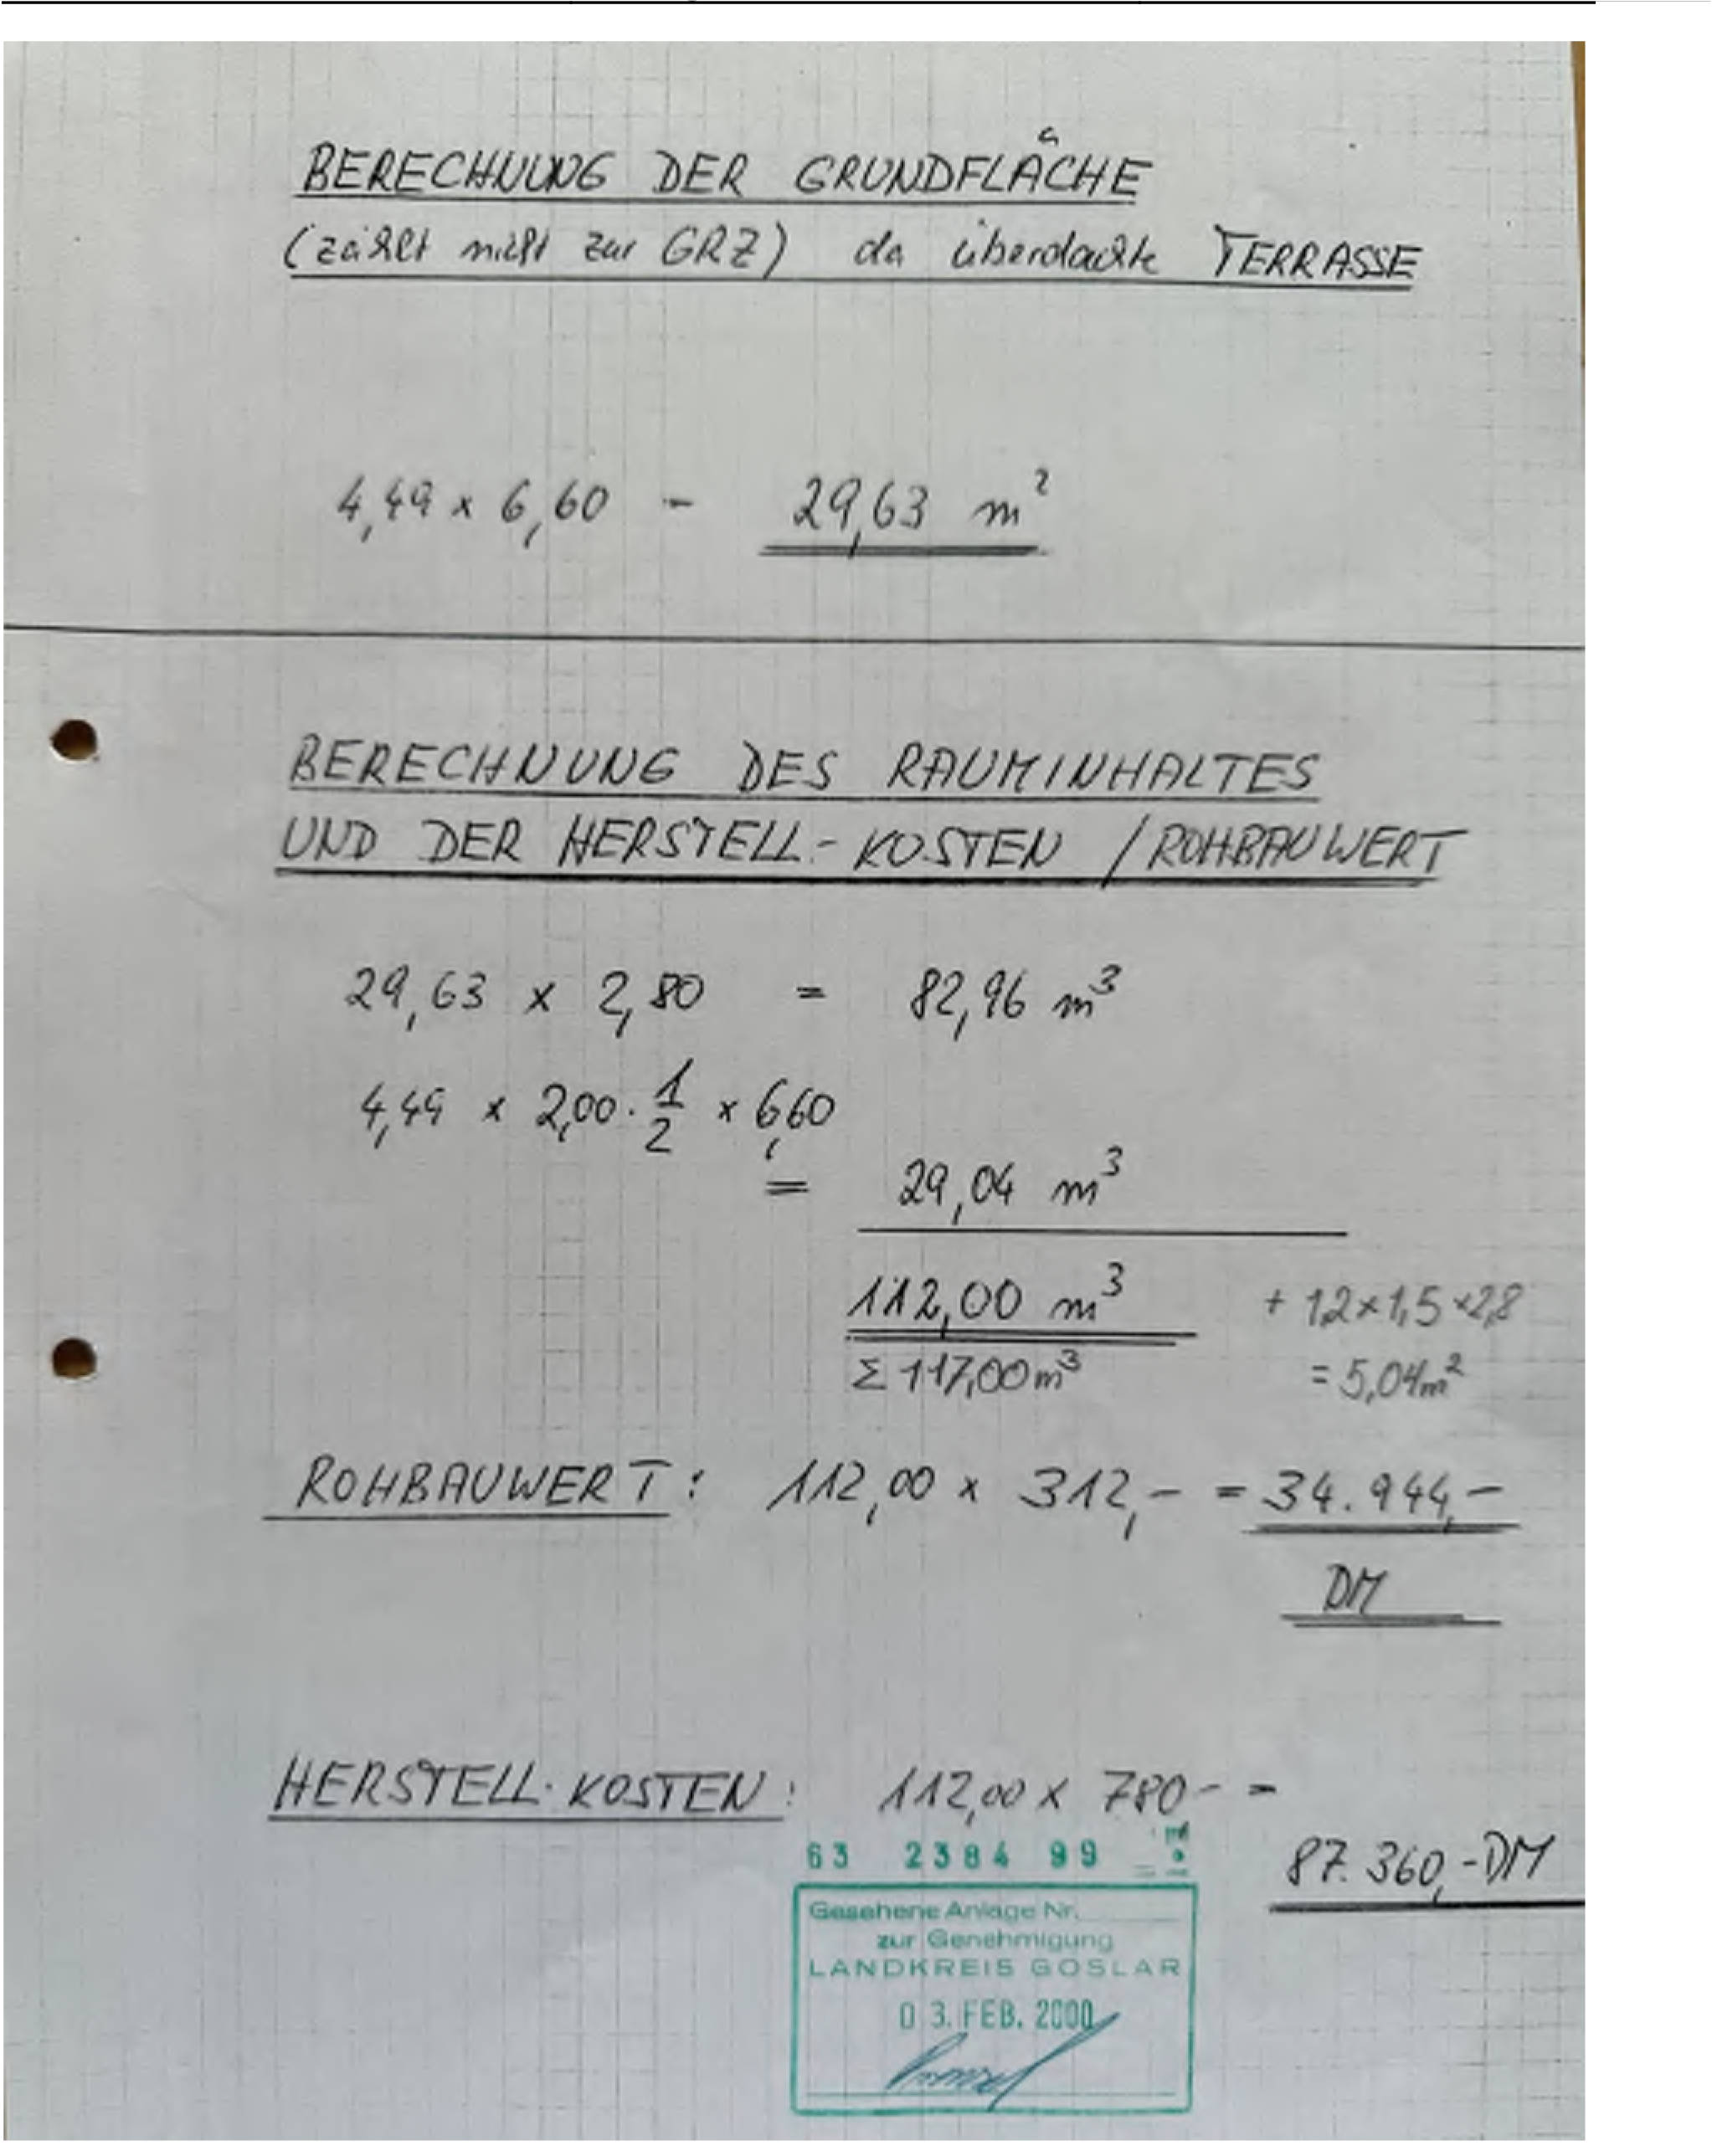 BERECHNUNG DER GRUNDFLÄCHE
(zählt nicht zur GRZ) da überdachte TERRASSE
4,49 x 6,60 - 29,63 m²
BERECHNUNG DES RAUMINHALTES
UND DER HERSTELL.-KOSTEN / ROHBAUWERT
29,63 x 2,80 = 82,96 m³
4,49 x 2,00 · 1/2 x 6,60
= 29,04 m³
112,00 m³ + 1,2 x 1,5 x 2,8
Σ 117,00 m³ = 5,04 m²
ROHBAUWERT: 112,00 x 312,- = 34.944,-
DM
HERSTELL.KOSTEN: 112,00 x 780- =
63 2384 99
87.360,-DM
Gesehene Anlage Nr.
zur Genehmigung
LANDKREIS GOSLAR
03. FEB. 2000